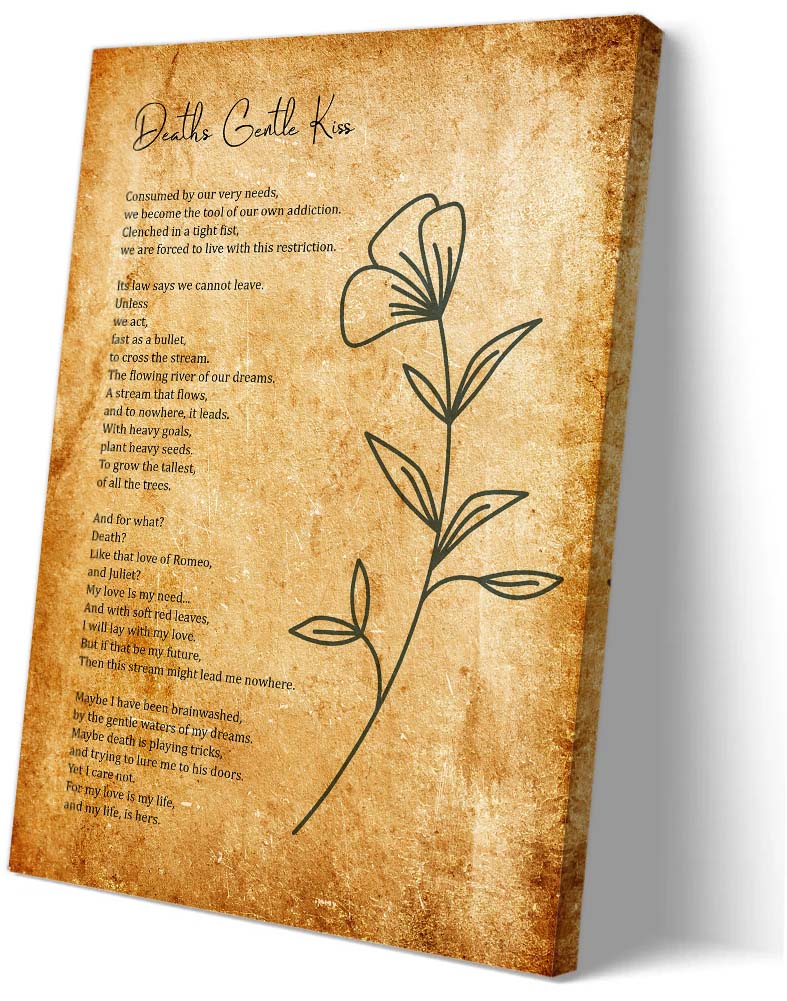 Deaths Gentle Kiss
Consumed by our very needs,
we become the tool of our own addiction.
Clenched in a tight fist,
we are forced to live with this restriction.
Its law says we cannot leave.
Unless
we act,
fast as a bullet,
to cross the stream.
The flowing river of our dreams.
A stream that flows,
and to nowhere, it leads.
With heavy goals,
plant heavy seeds.
To grow the tallest,
of all the trees.
And for what?
Death?
Like that love of Romeo,
and Juliet?
My love is my need...
And with soft red leaves,
I will lay with my love.
But if that be my future,
Then this stream might lead me nowhere.
Maybe I have been brainwashed,
by the gentle waters of my dreams.
Maybe death is playing tricks,
and trying to lure me to his doors.
Yet I care not.
For my love is my life,
and my life, is hers.